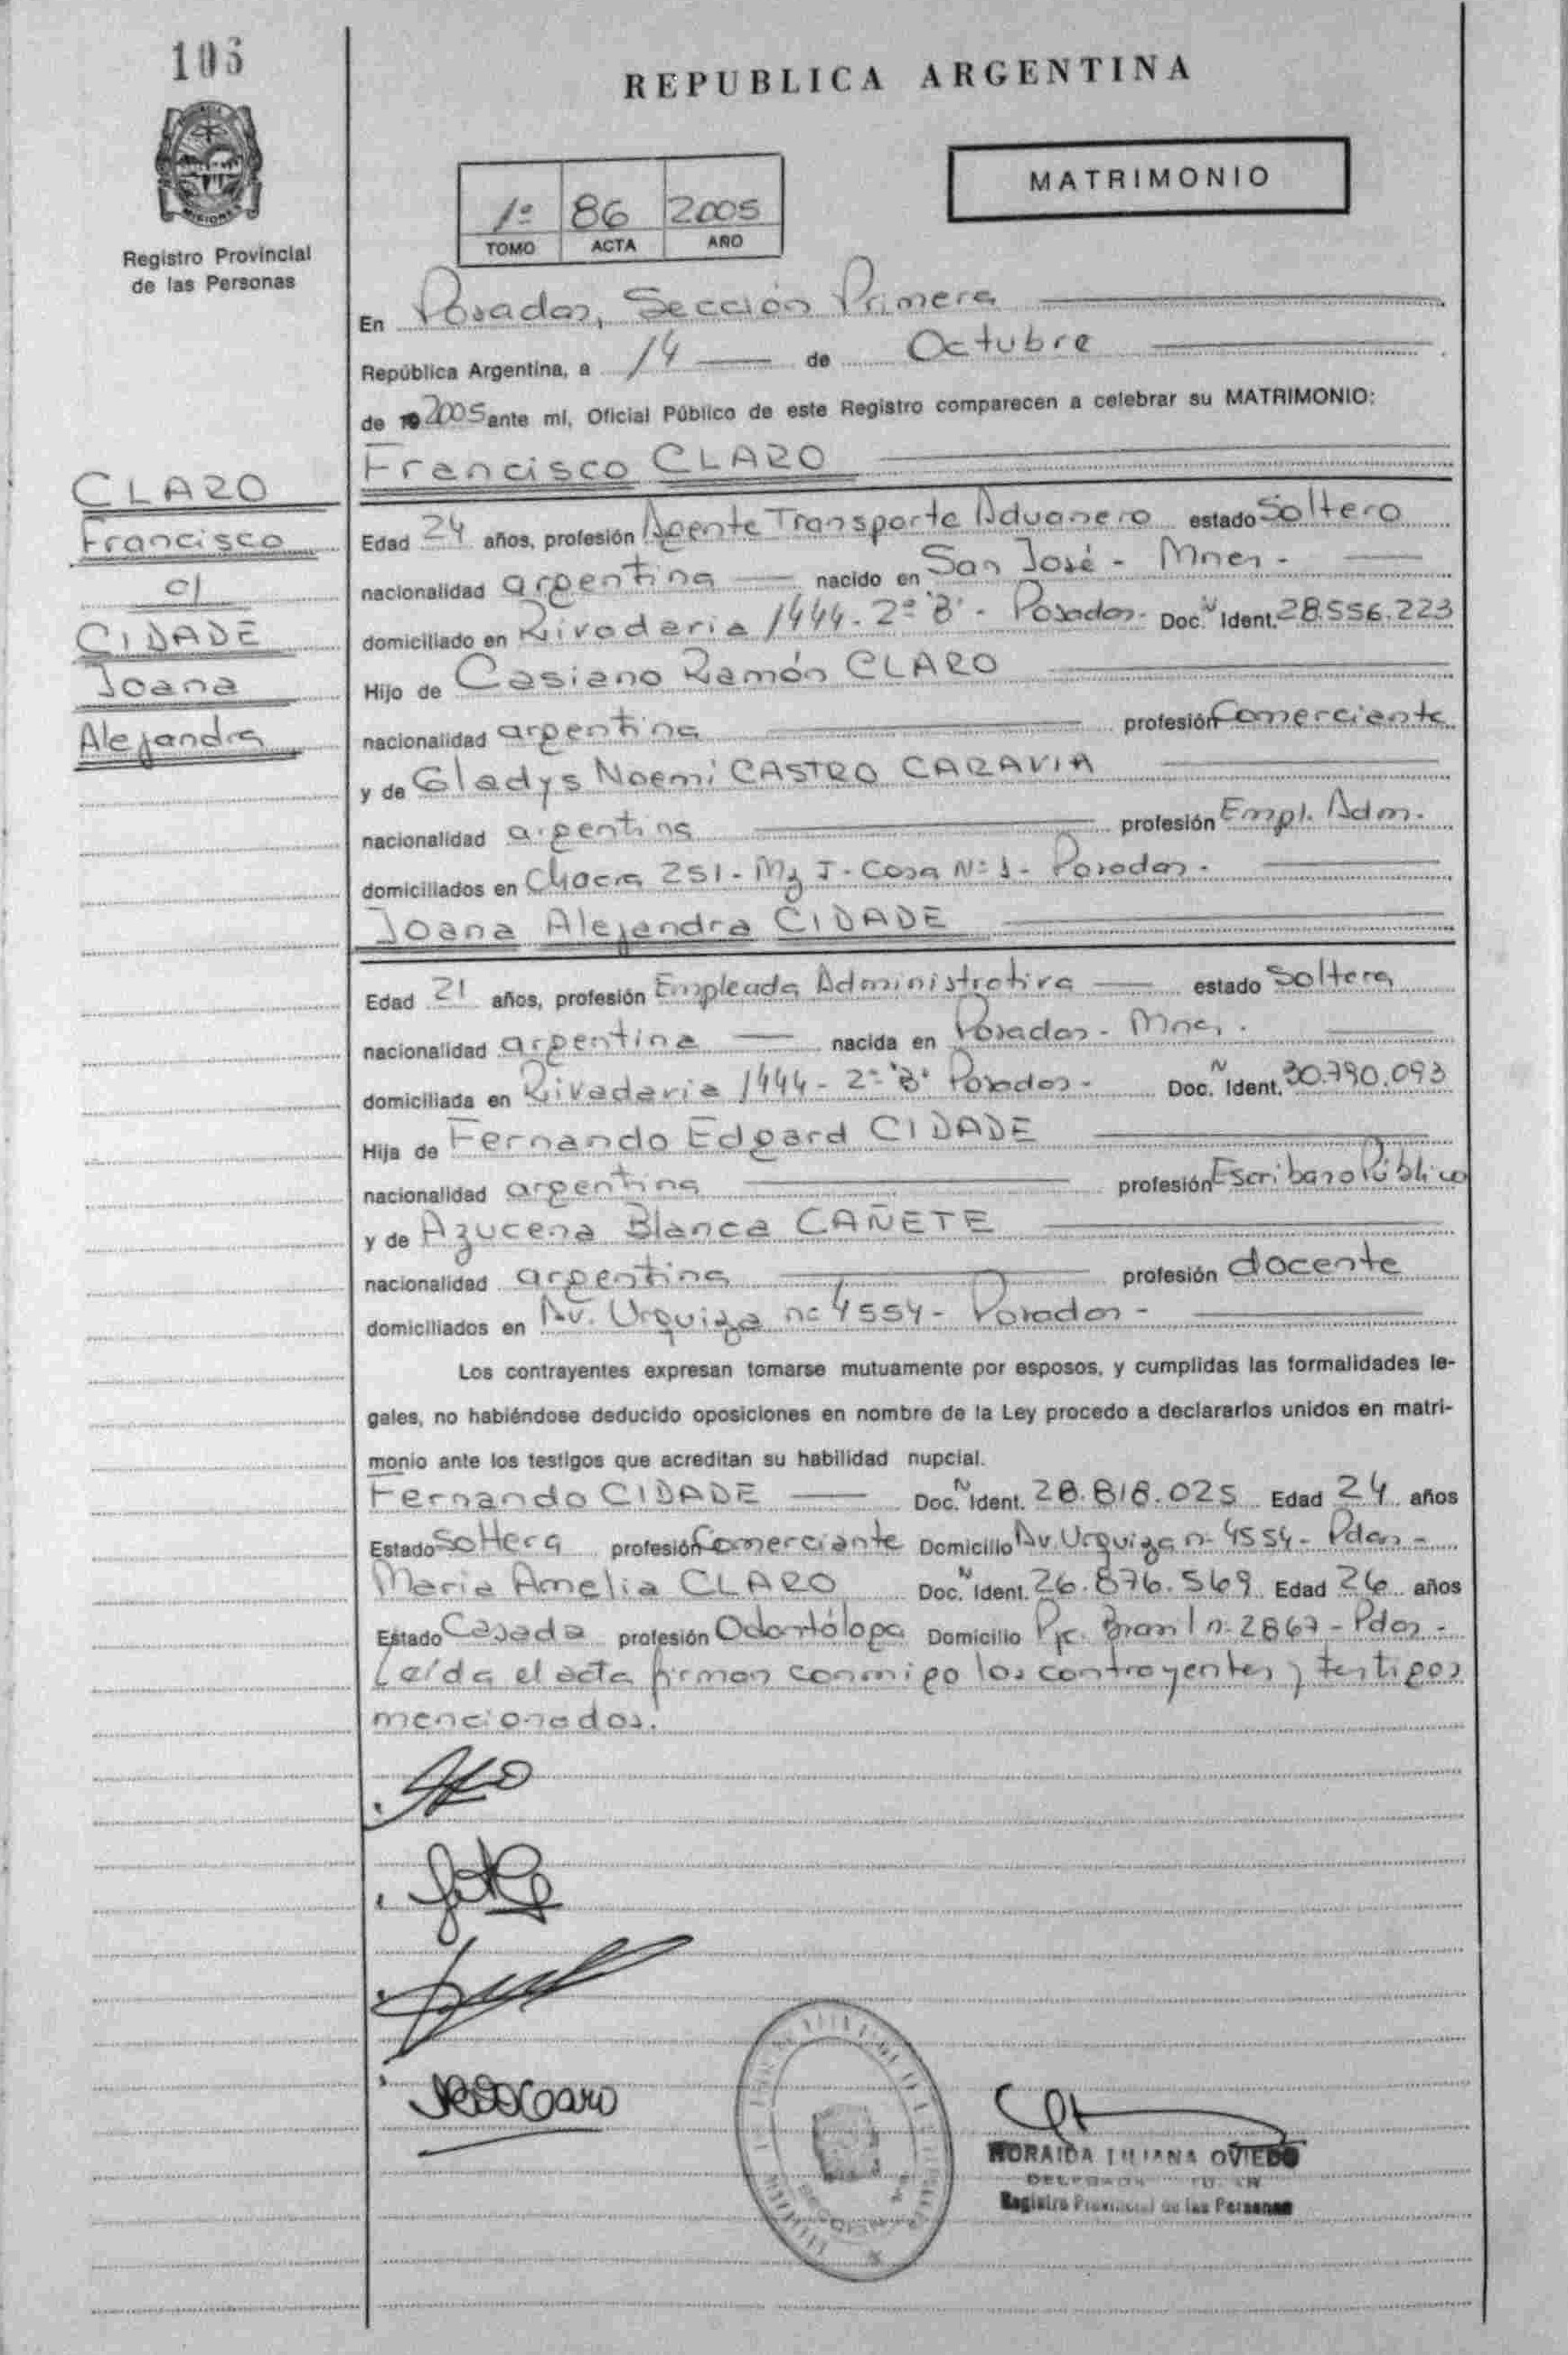 105
REPUBLICA ARGENTINA
MISIONES
Registro Provincial
de las Personas
1º 86 2005
TOMO ACTA AÑO
MATRIMONIO
En Posadas, Sección Primera
República Argentina, a 14 de Octubre
de 2005 ante mí, Oficial Público de este Registro comparecen a celebrar su MATRIMONIO:
Francisco CLARO
CLARO
Francisco
c/
CIDADE
Joana
Alejandra
Edad 24 años, profesión Agente Transporte Aduanero estado Soltero
nacionalidad argentina nacido en San José - Mnes -
domiciliado en Rivadavia 1444 - 2º "B" - Posadas - Doc. N Ident. 28.556.223
Hijo de Casiano Ramón CLARO
nacionalidad argentina profesión Comerciante
y de Gladys Noemí CASTRO CARAVIA
nacionalidad argentina profesión Empl. Adm.
domiciliados en Chacra 251 - Mz J - Casa Nº 1 - Posadas -
Joana Alejandra CIDADE
Edad 21 años, profesión Empleada Administrativa estado Soltera
nacionalidad argentina nacida en Posadas - Mnes.
domiciliada en Rivadavia 1444 - 2º "B" Posadas - Doc. N Ident. 30.790.093
Hija de Fernando Edgard CIDADE
nacionalidad argentina profesión Escribano Público
y de Azucena Blanca CAÑETE
nacionalidad argentina profesión docente
domiciliados en Av. Urquiza nº 4554 - Posadas -
Los contrayentes expresan tomarse mutuamente por esposos, y cumplidas las formalidades le-
gales, no habiéndose deducido oposiciones en nombre de la Ley procedo a declararlos unidos en matri-
monio ante los testigos que acreditan su habilidad nupcial.
Fernando CIDADE Doc. N Ident. 28.818.025 Edad 24 años
Estado Soltera profesión Comerciante Domicilio Av. Urquiza nº 4554 - Pdas -
Maria Amelia CLARO Doc. N Ident. 26.876.569 Edad 26 años
Estado Casada profesión Odontóloga Domicilio Pje. Brasil nº 2867 - Pdas -
Leída el acta firman conmigo los contrayentes y testigos
mencionados.
NORAIDA LILIANA OVIEDO
Registro Provincial de las Personas